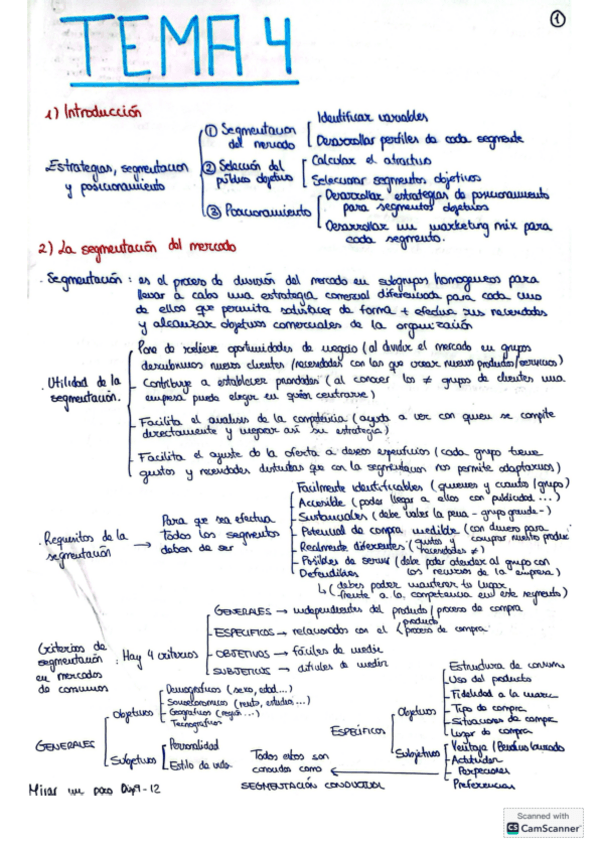 ①
TEMA 4
1) Introducción
Estrategias, segmentacion y posicionamiento
① Segmentacion del mercado
Identificar variables
Desarrollar perfiles de cada segmento
② Selección del público objetivo
Calcular el atractivo
Seleccionar segmentos objetivos
③ Posicionamiento
Desarrollar estrategias de posicionamiento
para segmentos objetivos
Desarrollar un marketing mix para
cada segmento.
2) La segmentación del mercado
. Segmentación : es el proceso de division del mercado en subgrupos homogeneos para
llevar a cabo una estrategia comercial diferenciada para cada uno
de ellos que permita satisfacer de forma + efectiva sus necesidades
y alcanzar objetivos comerciales de la organización
. Utilidad de la
segmentación.
Pone de relieve oportunidades de negocio (al dividir el mercado en grupos
descubrimos nuevos clientes /necesidades con las que crear nuevos productos/servicios)
- Contribuye a establecer prioridades ( al conocer los ≠ grupos de clientes una
empresa puede elegir en quién centrarse)
- Facilita el analisis de la competencia (ayuda a ver con quien se compite
directamente y mejorar así su estrategia)
- Facilita el ajuste de la oferta a deseos específicos (cada grupo tiene
gustos y necesidades distintas que con la segmentacion nos permite adaptarnos)
. Requisitos de la
segmentación
→ Para que sea efectiva
todos los segmentos
deben de ser
Facilmente identificables (quienes y cuantos (grupo)
- Accesible (poder llegar a ellos con publicidad ...)
- Sustanciales (debe valer la pena - grupo grande -)
- Potencial de compra medible (con dinero para
comprar nuestro produc
- Realmente diferentes (gustos y necesidades ≠)
- Posibles de servir (debe poder atender al grupo con
los recursos de la empresa)
Defendibles
↳ (debes poder mantener tu lugar
frente a la competencia en este segmento)
Criterios de
segmentación
en mercados
de consumos
: Hay 4 criterios
GENERALES → independientes del producto/proceso de compra
- ESPECIFICOS → relacionados con el producto
proceso de compra
- OBJETIVOS → fáciles de medir
SUBJETIVOS → difíciles de medir
GENERALES
Objetivos
Demográficos (sexo, edad...)
- Socioeconomicos (renta, estudios ...)
- Geográficos (región ...)
Tecnográficos
Subjetivos
Personalidad
Estilo de vida
ESPECÍFICOS
Objetivos
Estructura de consumo
- Uso del producto
- Fidelidad a la marca
- Tipo de compra
- Situaciones de compra
Lugar de compra
Subjetivos
Ventaja / Beneficio buscado
- Actitudes
- Percepciones
Preferencias
Todos estos son
conocidos como ←
SEGMENTACIÓN CONDUCTUAL
Mirar un poco 9-12
Scanned with
CS CamScanner